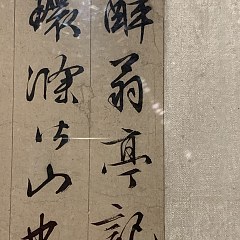 醉翁亭記
環滁皆山也